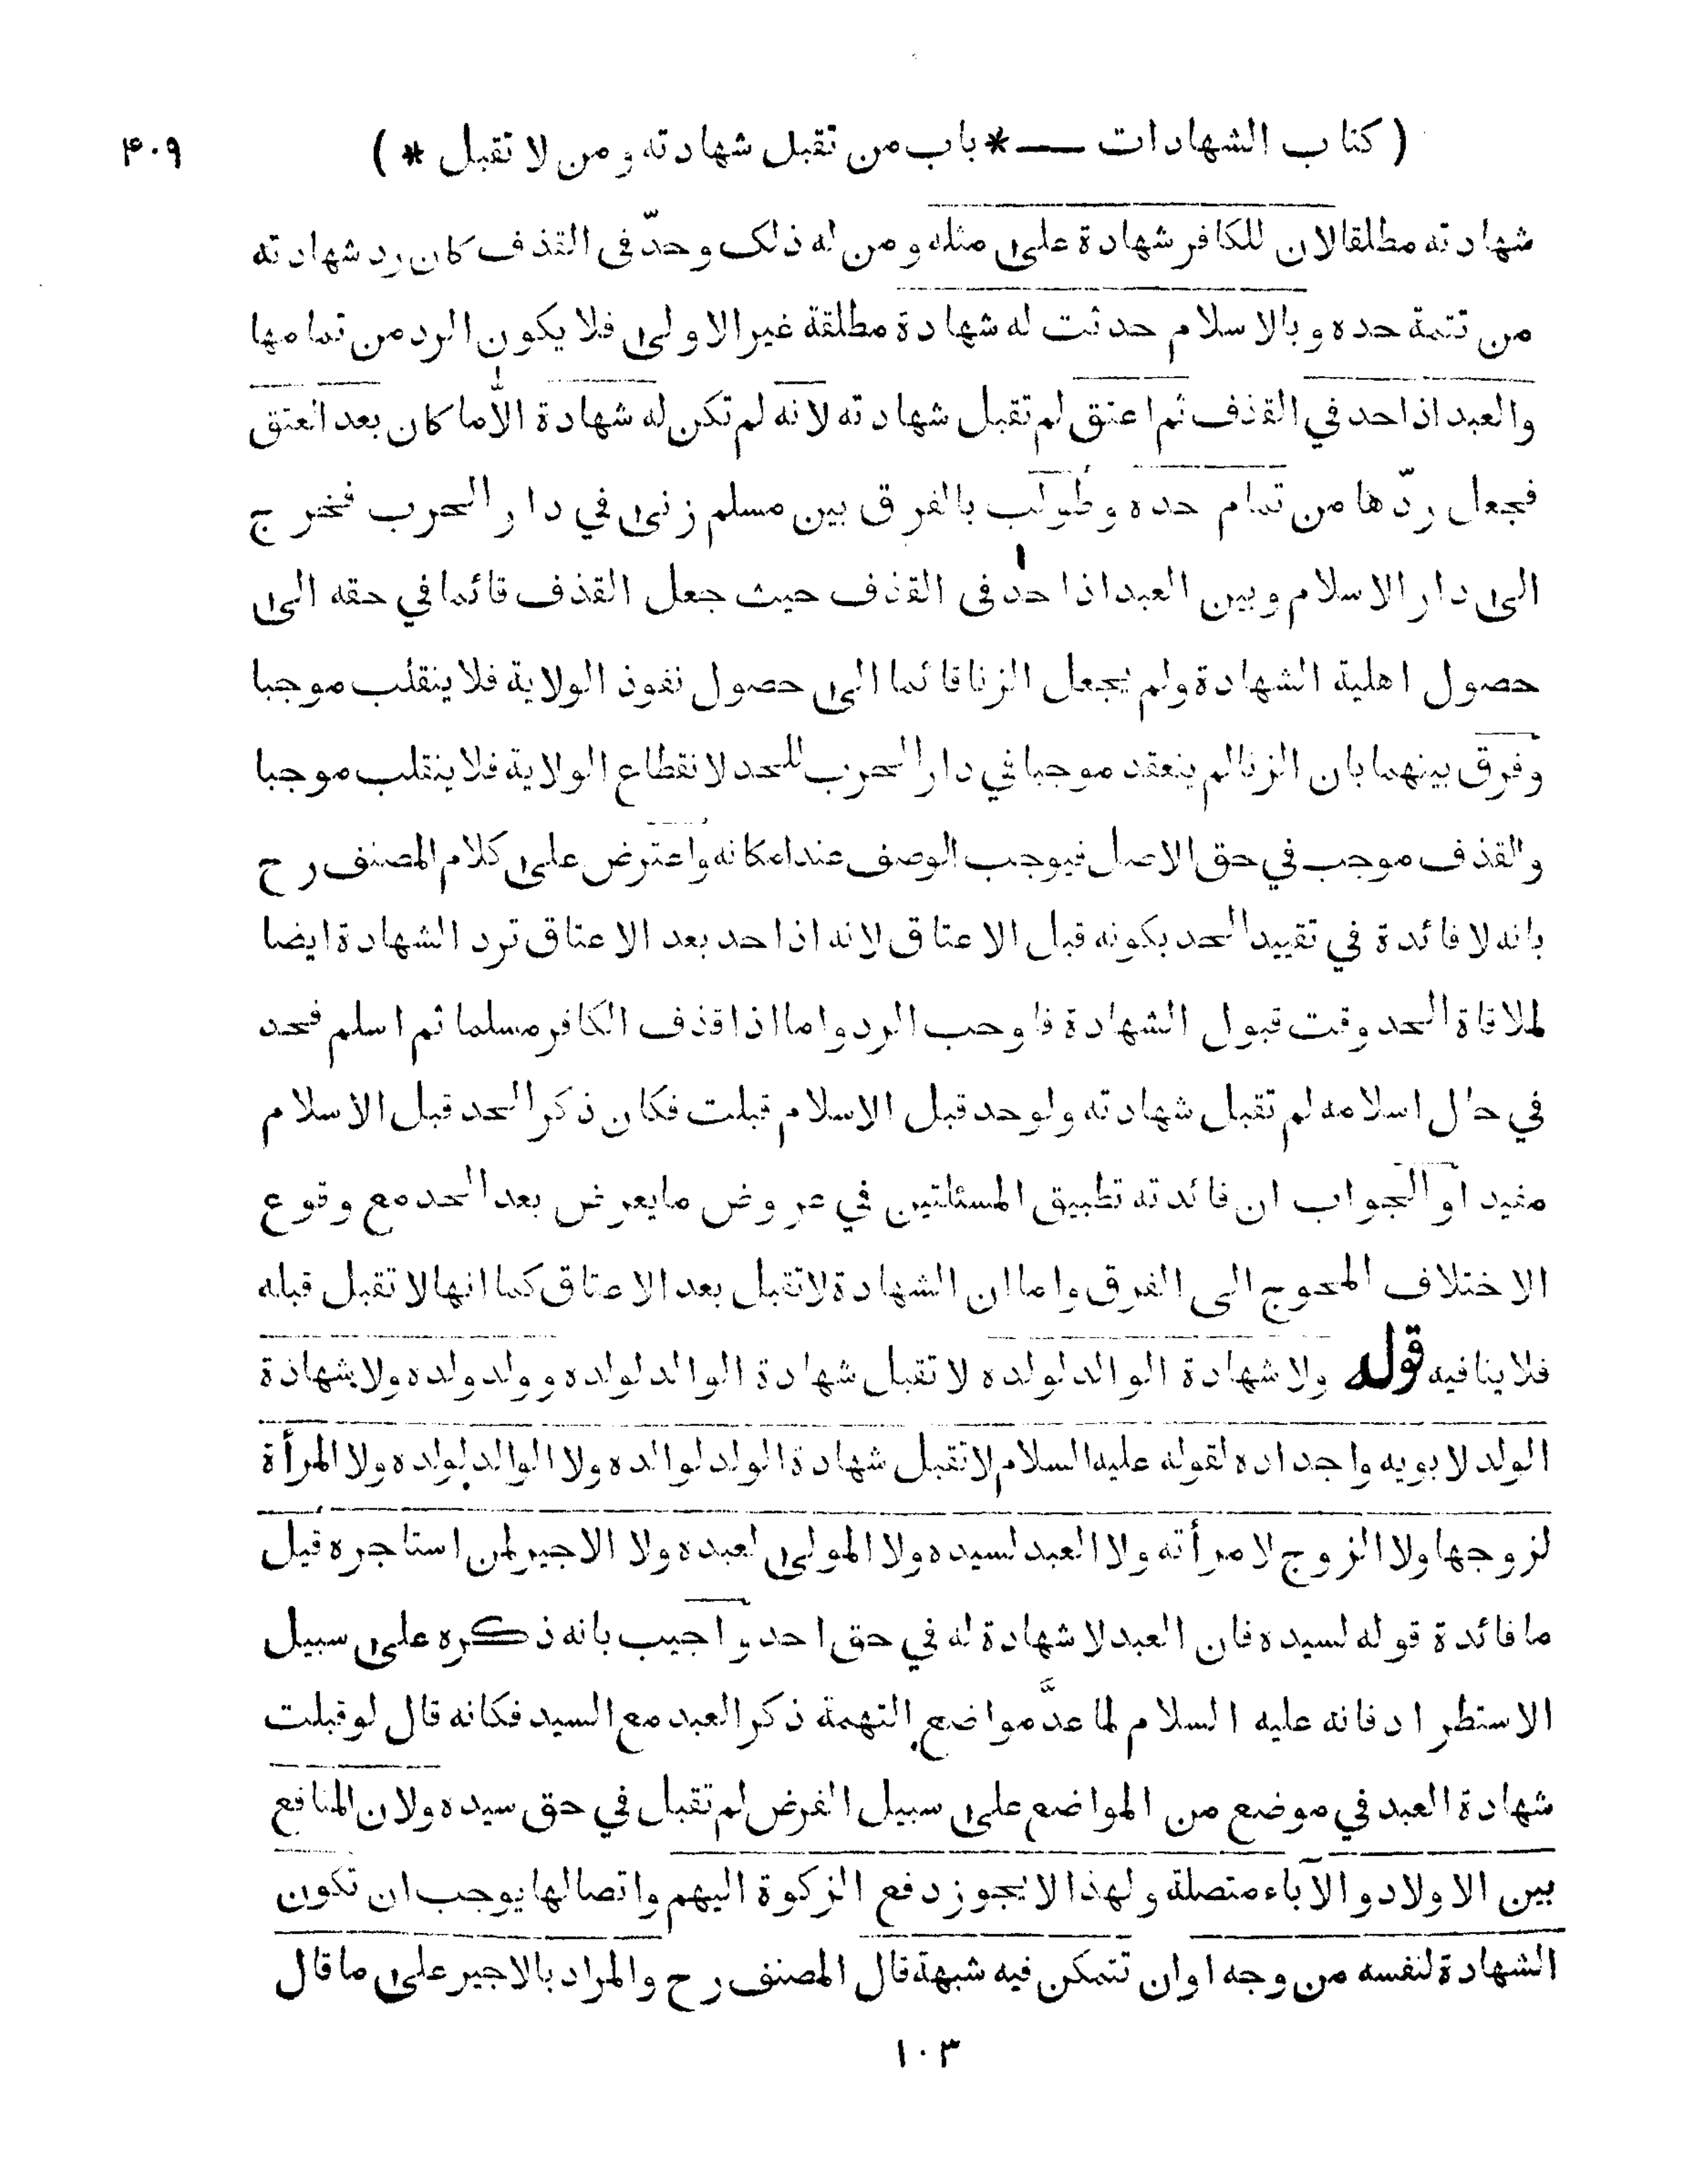 ( كتاب الشهادات ــــ * باب من تقبل شهادته ومن لا تقبل * ) ۴۰۹
شهادته مطلقا لان للكافر شهادة على مثله ومن له ذلك وحدّ في القذف كان رد شهادته
من تتمة حده وبالاسلام حدثت له شهادة مطلقة غير الاولى فلا يكون الرد من تمامها
والعبد اذا حد في القذف ثم اعتق لم تقبل شهادته لانه لم تكن له شهادة الّا ما كان بعد العتق
فجعل ردّها من تمام حده وطولب بالفرق بين مسلم زنى في دار الحرب فخرج
الى دار الاسلام وبين العبد اذا حد في القذف حيث جعل القذف قائما في حقه الى
حصول اهلية الشهادة ولم يجعل الزنا قائما الى حصول نفوذ الولاية فلا ينقلب موجبا
وفرق بينهما بان الزنا لم ينعقد موجبا في دار الحرب للحد لانقطاع الولاية فلا ينقلب موجبا
والقذف موجب في حق الاصل فيوجب الوصف عند امكانه واعترض على كلام المصنف رح
بانه لا فائدة في تقييد الحد بكونه قبل الاعتاق لانه اذا حد بعد الاعتاق ترد الشهادة ايضا
لملاقاة الحد وقت قبول الشهادة فاوجب الرد واما اذا قذف الكافر مسلما ثم اسلم فحد
في حال اسلامه لم تقبل شهادته ولو حد قبل الاسلام قبلت فكان ذكر الحد قبل الاسلام
مفيدا والجواب ان فائدته تطبيق المسئلتين في عروض ما يعرض بعد الحد مع وقوع
الاختلاف المحوج الى الفرق واما ان الشهادة لا تقبل بعد الاعتاق كما انها لا تقبل قبله
فلا ينافيه قوله ولا شهادة الوالد لولده لا تقبل شهادة الوالد لولده وولد ولده ولا شهادة
الولد لابويه واجداده لقوله عليه السلام لا تقبل شهادة الولد لوالده ولا الوالد لولده ولا المرأة
لزوجها ولا الزوج لامرأته ولا العبد لسيده ولا المولى لعبده ولا الاجير لمن استاجره قيل
ما فائدة قوله لسيده فان العبد لا شهادة له في حق احد واجيب بانه ذكره على سبيل
الاستطراد فانه عليه السلام لما عدّ مواضع التهمة ذكر العبد مع السيد فكانه قال لو قبلت
شهادة العبد في موضع من المواضع على سبيل الفرض لم تقبل في حق سيده ولان المنافع
بين الاولاد والآباء متصلة ولهذا لا يجوز دفع الزكوة اليهم واتصالها يوجب ان تكون
الشهادة لنفسه من وجه او ان تتمكن فيه شبهة قال المصنف رح والمراد بالاجير على ما قال
۱۰۳